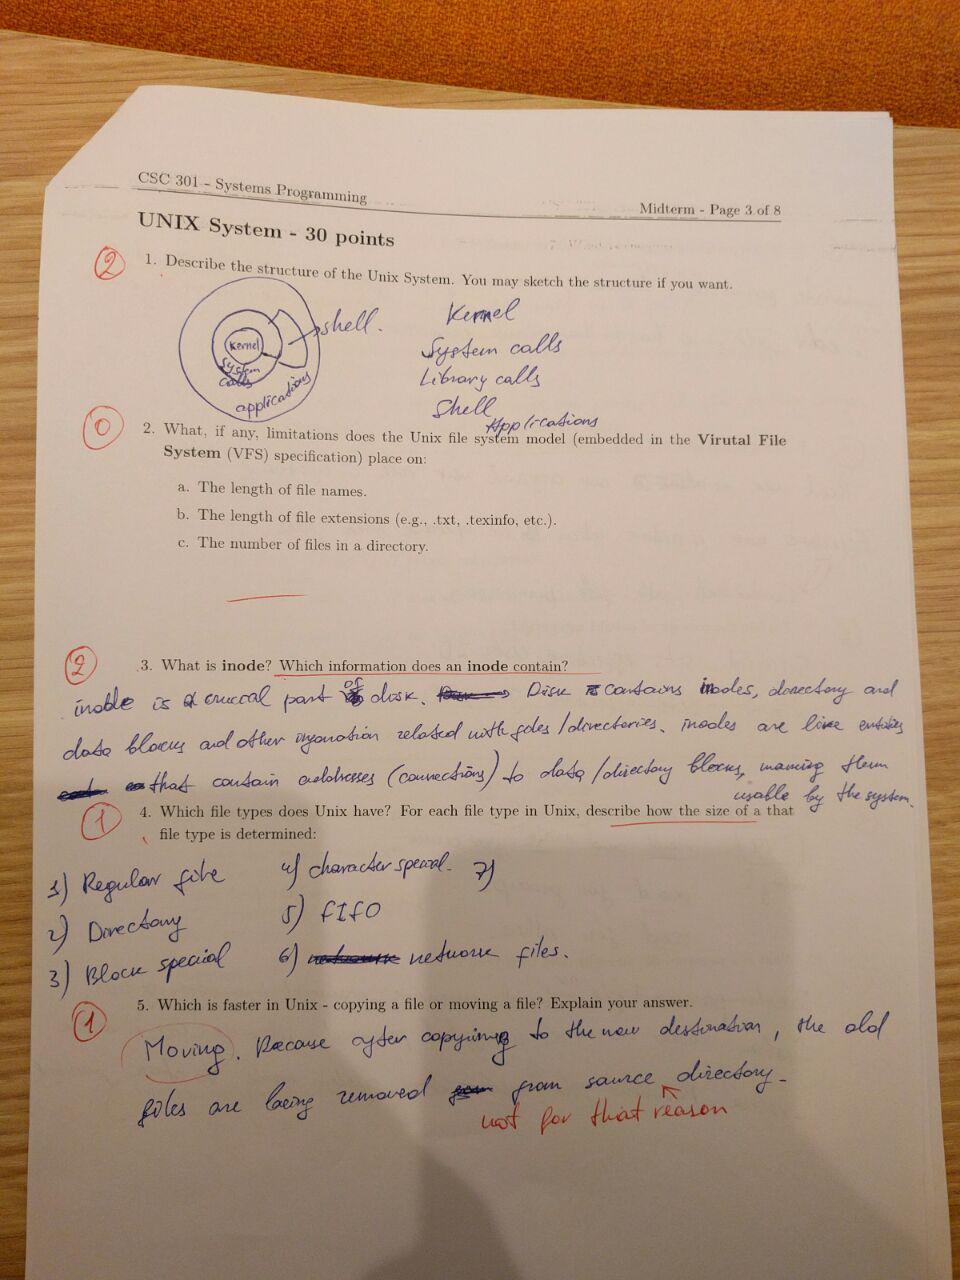 CSC 301 - Systems Programming
Midterm - Page 3 of 8
UNIX System - 30 points
2
1. Describe the structure of the Unix System. You may sketch the structure if you want.
Kernel
shell.
Kernel
System calls
system calls
Library calls
applications
Shell
Applications
0
2. What, if any, limitations does the Unix file system model (embedded in the Virutal File
System (VFS) specification) place on:
a. The length of file names.
b. The length of file extensions (e.g., .txt, .texinfo, etc.).
c. The number of files in a directory.
2
3. What is inode? Which information does an inode contain?
is a crucial part of disk. Disk contains inodes, directory and
data blocks and other related with files/directories. inodes are like entities
that contain addresses (connections) to data/directory blocks, making them
usable by the system.
1
4. Which file types does Unix have? For each file type in Unix, describe how the size of a that
file type is determined:
1) Regular file
4) character special.
7)
2) Directory
5) FIFO
3) Block special
6) network files.
1
5. Which is faster in Unix - copying a file or moving a file? Explain your answer.
Moving. Because after copying to the new destination, the old
files are being removed from source directory.
not for that reason